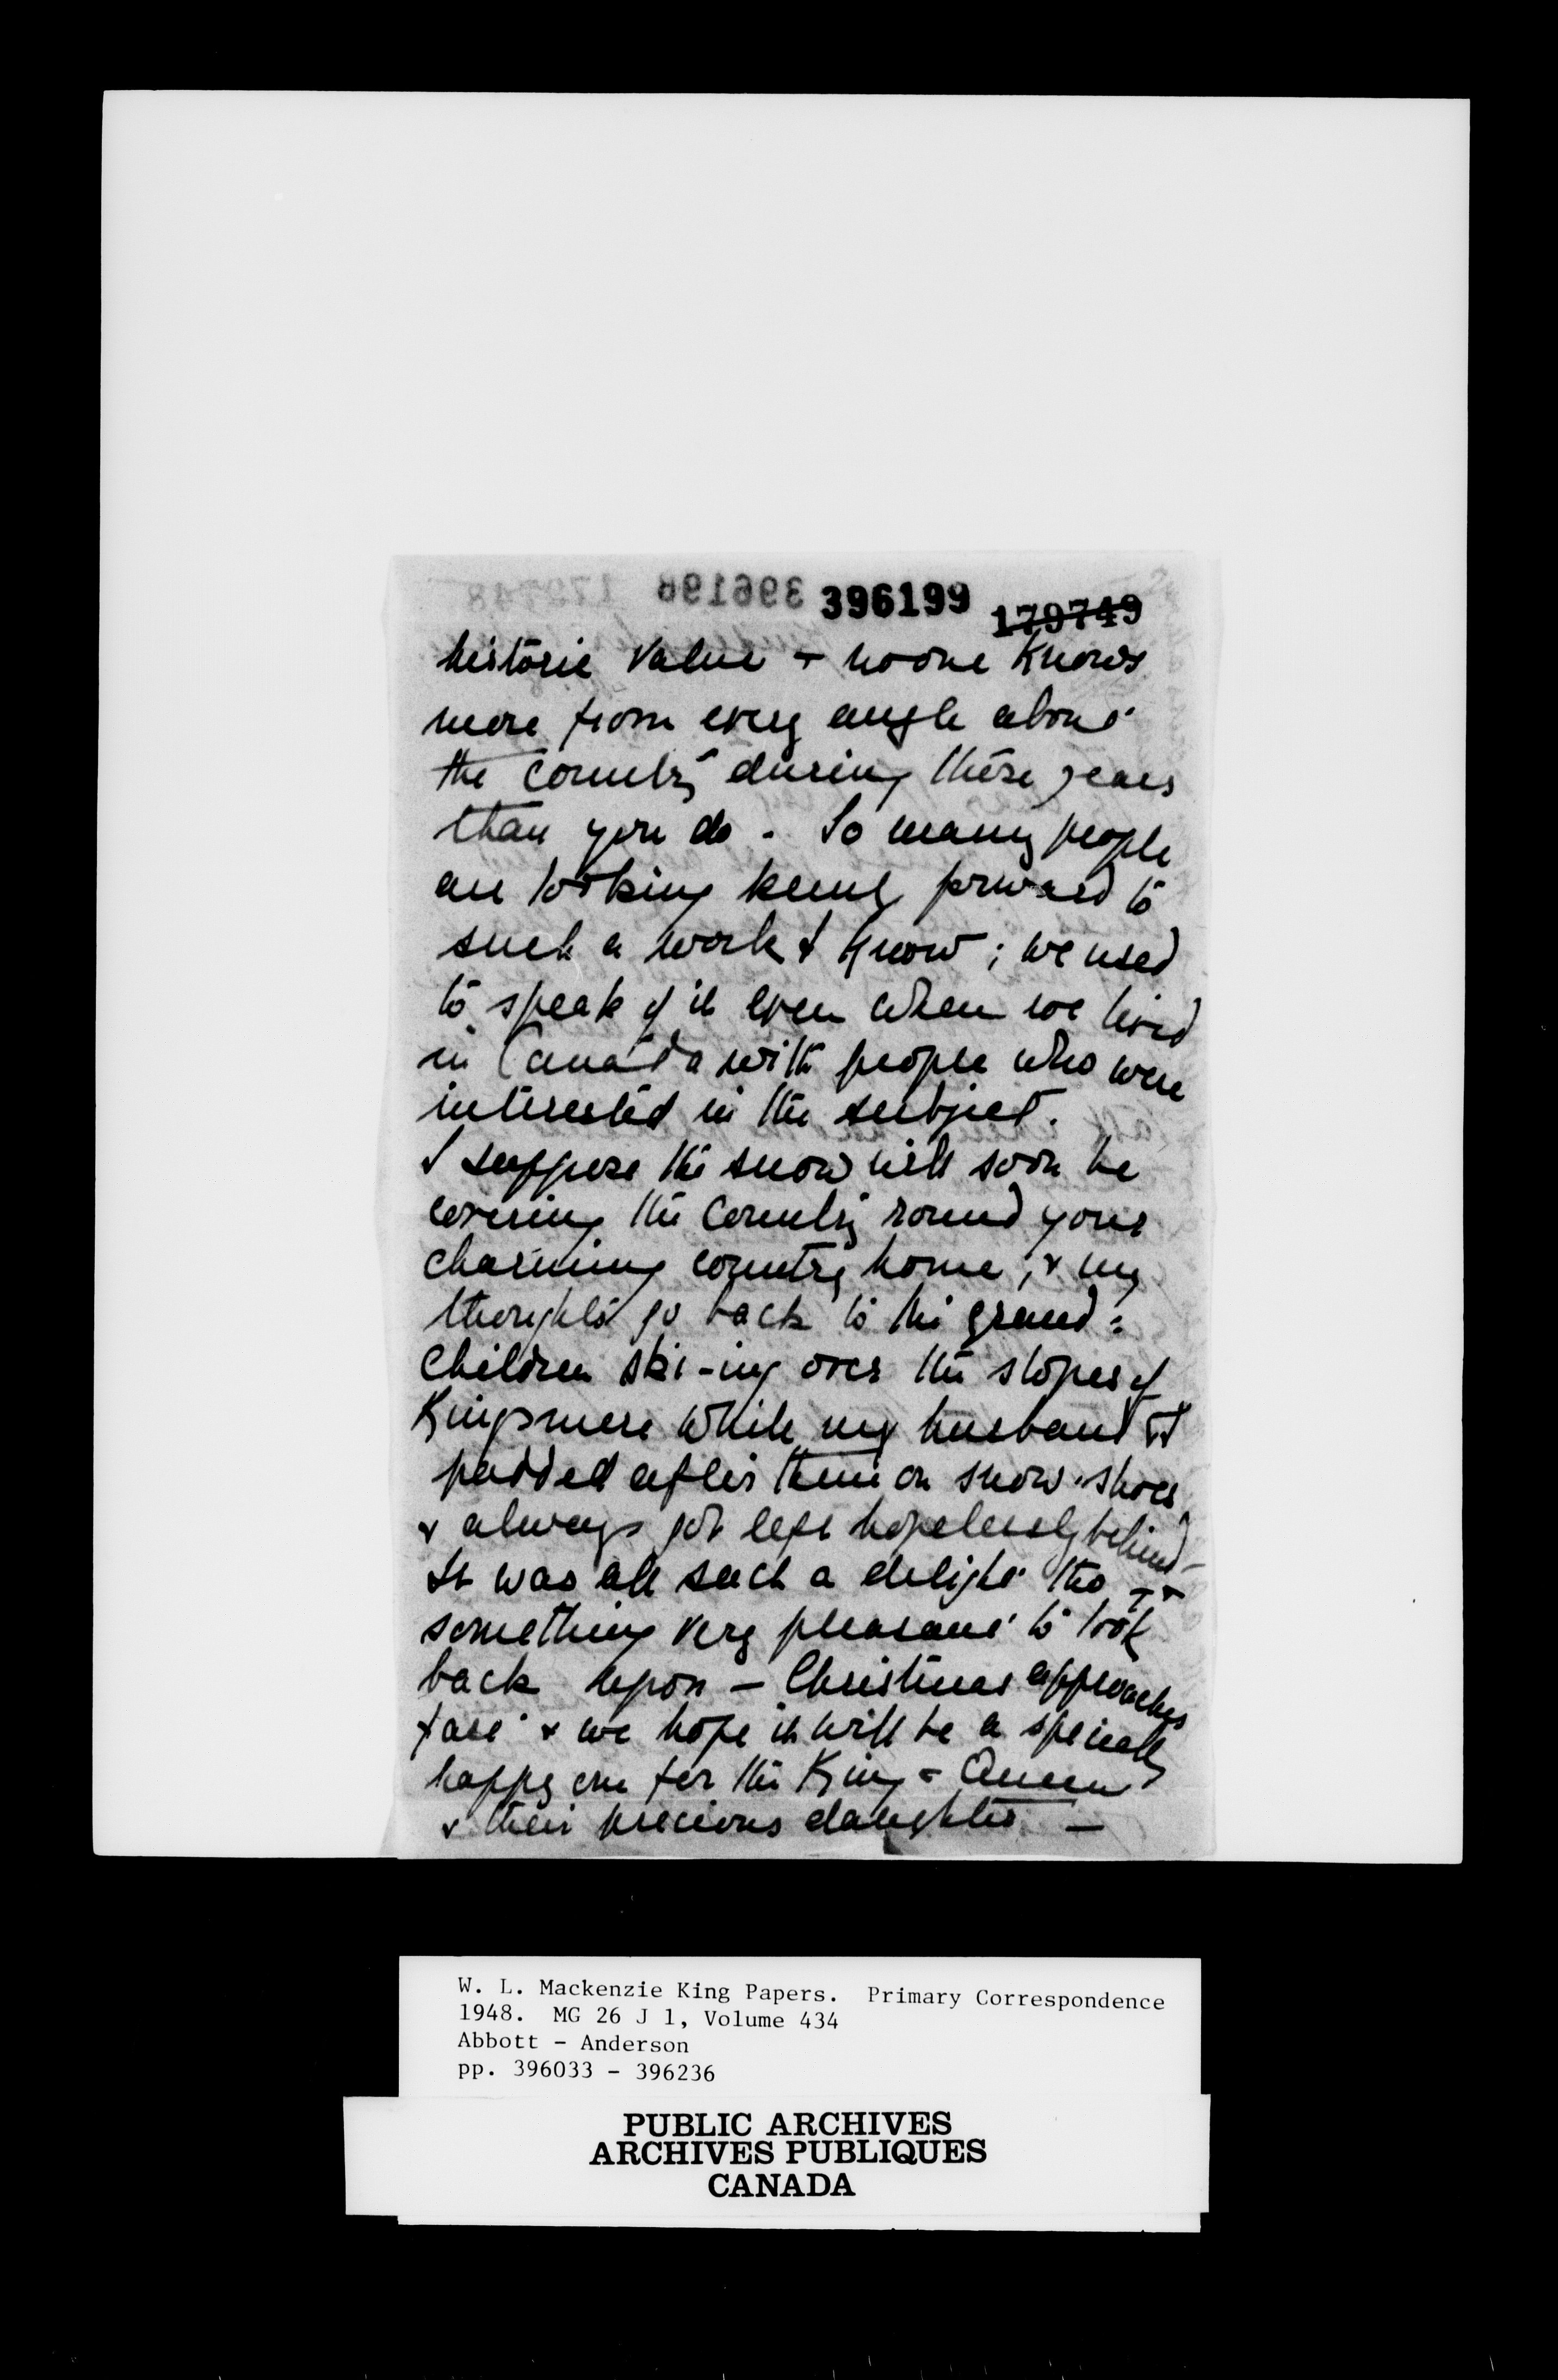 396199 179749
historic value & no one knows
more from every angle about
the country during these years
than you do. So many people
are looking keenly forward to
such a work I know; we used
to speak of it even when we lived
in Canada with people who were
interested in the subject.
I suppose the snow will soon be
covering the country round your
charming country home, & my
thoughts go back to the grand=
children ski-ing over the slopes of
Kingsmere while my husband & I
padded after them on snow-shoes
& always got left hopelessly behind -
It was all such a delight tho - &
something very pleasant to look
back upon - Christmas approaches
fast & we hope it will be a specially
happy one for the King & Queen
& their precious daughter -
W. L. Mackenzie King Papers. Primary Correspondence
1948. MG 26 J 1, Volume 434
Abbott - Anderson
pp. 396033 - 396236
PUBLIC ARCHIVES
ARCHIVES PUBLIQUES
CANADA